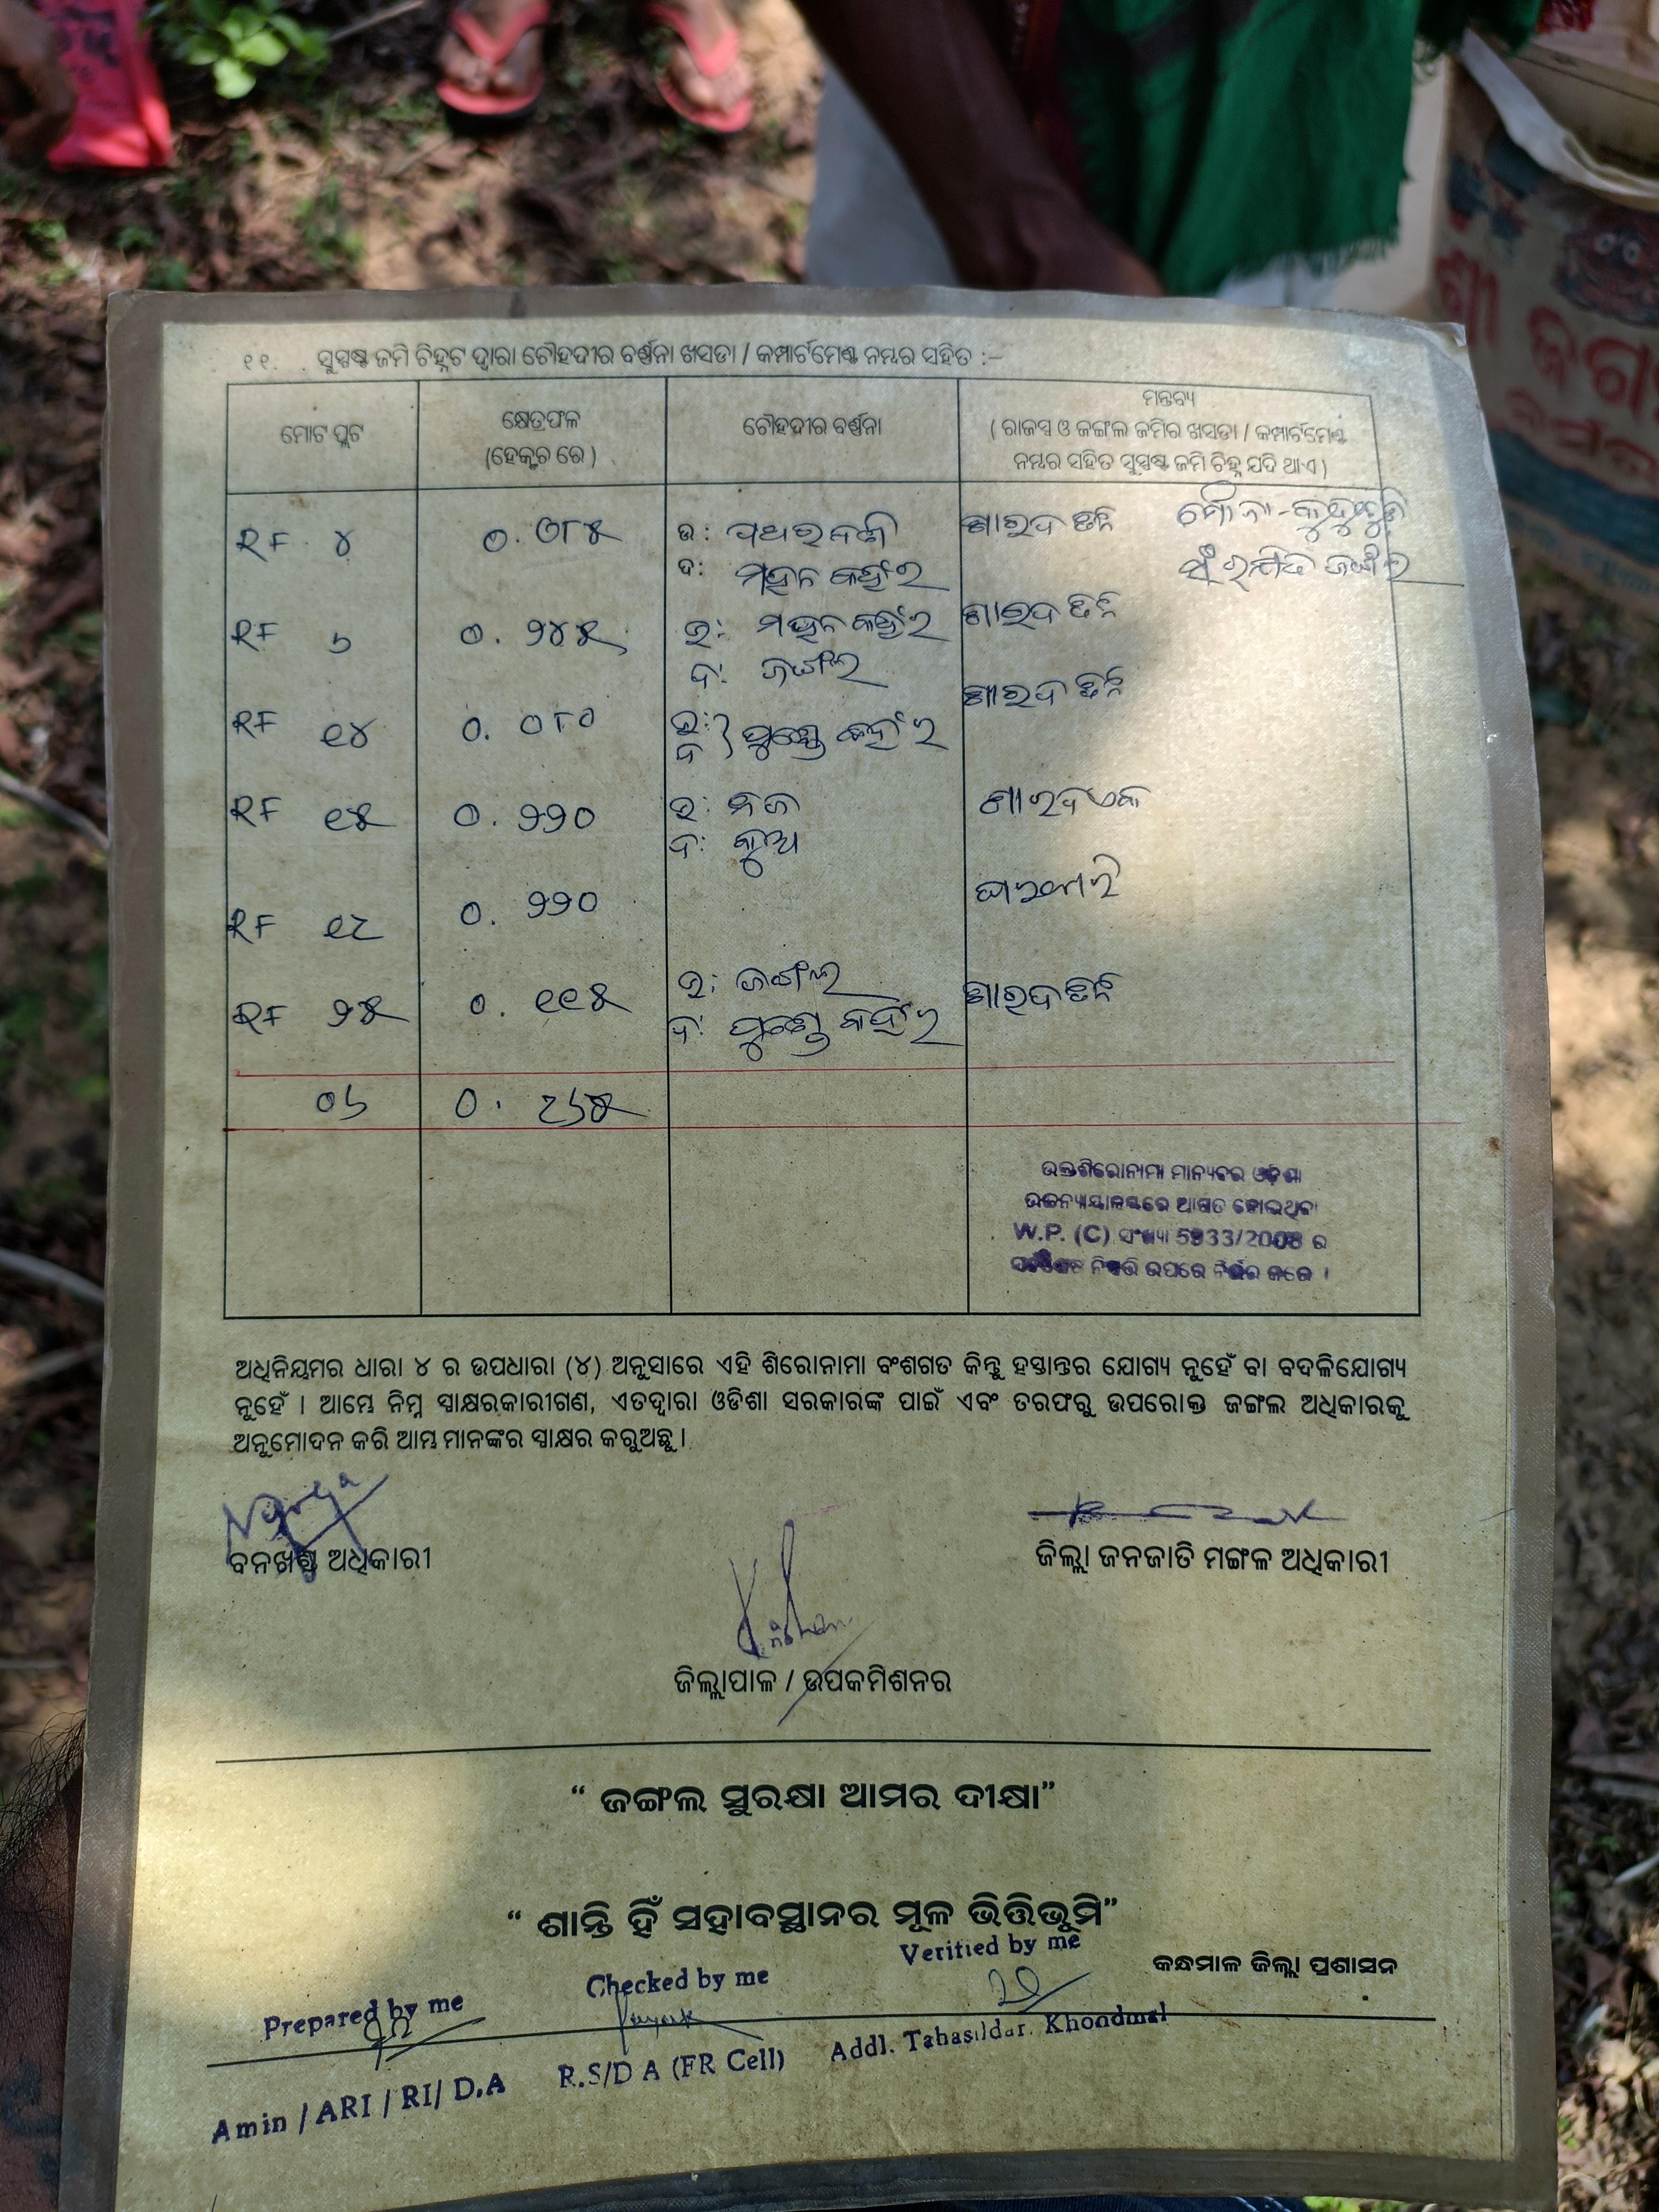 ୧୧. ସୁସ୍ପଷ୍ଟ ଜମି ଚିହ୍ନଟ ଦ୍ୱାରା ଚୌହଦ୍ଦୀର ବର୍ଣ୍ଣନା ଖସଡା / କମ୍ପାର୍ଟମେଣ୍ଟ ନମ୍ବର ସହିତ :–
ମୋଟ ପ୍ଲଟ
କ୍ଷେତ୍ରଫଳ
(ହେକ୍ଟର ରେ)
ଚୌହଦ୍ଦୀର ବର୍ଣ୍ଣନା
ମନ୍ତବ୍ୟ
( ରାଜସ୍ୱ ଓ ଜଙ୍ଗଲ ଜମିର ଖସଡା / କମ୍ପାର୍ଟମେଣ୍ଟ
ନମ୍ବର ସହିତ ସୁସ୍ପଷ୍ଟ ଜମି ଚିହ୍ନ ଯଦି ଥାଏ )
RF ୪ ୦.୦୮୫ ଉ: ଶାରଦ ତିନି ମୌଜା-
ଦ: ମହନ କହଁର ସଂରକ୍ଷିତ ଜଙ୍ଗଲ
RF ୭ ୦.୨୪୫ ଉ: ମହନ କହଁର ଶାରଦ ତିନି
ଦ: ଜଙ୍ଗଲ
RF ୧୪ ୦.୦୮୦ ଉ: ଦ: କହଁର ଶାରଦ ତିନି
RF ୧୫ ୦.୨୨୦ ଉ: ନିଜ ଶାରଦ ଏକ
ଦ:
RF ୧୯ ୦.୨୨୦ ଘରବାରି
RF ୨୫ ୦.୧୧୫ ଉ: ଜଙ୍ଗଲ ଶାରଦ ତିନି
ଦ: କହଁର
୦୬ ୦.୯୬୫
ଉକ୍ତ ଶିରୋନାମା ମାନ୍ୟବର ଓଡ଼ିଶା
ଉଚ୍ଚନ୍ୟାୟାଳୟରେ ଆଗତ ହୋଇଥିବା
W.P. (C) ସଂଖ୍ୟା 5933/2008 ର
ନିଷ୍ପତ୍ତି ଉପରେ ନିର୍ଭର କରେ ।
ଅଧିନିୟମର ଧାରା ୪ ର ଉପଧାରା (୪) ଅନୁସାରେ ଏହି ଶିରୋନାମା ବଂଶଗତ କିନ୍ତୁ ହସ୍ତାନ୍ତର ଯୋଗ୍ୟ ନୁହେଁ ବା ବଦଳିଯୋଗ୍ୟ
ନୁହେଁ । ଆମ୍ଭେ ନିମ୍ନ ସ୍ୱାକ୍ଷରକାରୀଗଣ, ଏତଦ୍ୱାରା ଓଡିଶା ସରକାରଙ୍କ ପାଇଁ ଏବଂ ତରଫରୁ ଉପରୋକ୍ତ ଜଙ୍ଗଲ ଅଧିକାରକୁ
ଅନୁମୋଦନ କରି ଆମ୍ଭ ମାନଙ୍କର ସ୍ୱାକ୍ଷର କରୁଅଛୁ ।
ବନଖଣ୍ଡ ଅଧିକାରୀ
ଜିଲ୍ଲା ଜନଜାତି ମଙ୍ଗଳ ଅଧିକାରୀ
ଜିଲ୍ଲାପାଳ / ଉପକମିଶନର
“ ଜଙ୍ଗଲ ସୁରକ୍ଷା ଆମର ଦୀକ୍ଷା”
“ ଶାନ୍ତି ହିଁ ସହାବସ୍ଥାନର ମୂଳ ଭିତ୍ତିଭୂମି”
କନ୍ଧମାଳ ଜିଲ୍ଲା ପ୍ରଶାସନ
Prepared by me Checked by me Verified by me
Amin / ARI / RI/ D.A R.S/D A (FR Cell) Addl. Tahasildar. Khondmal